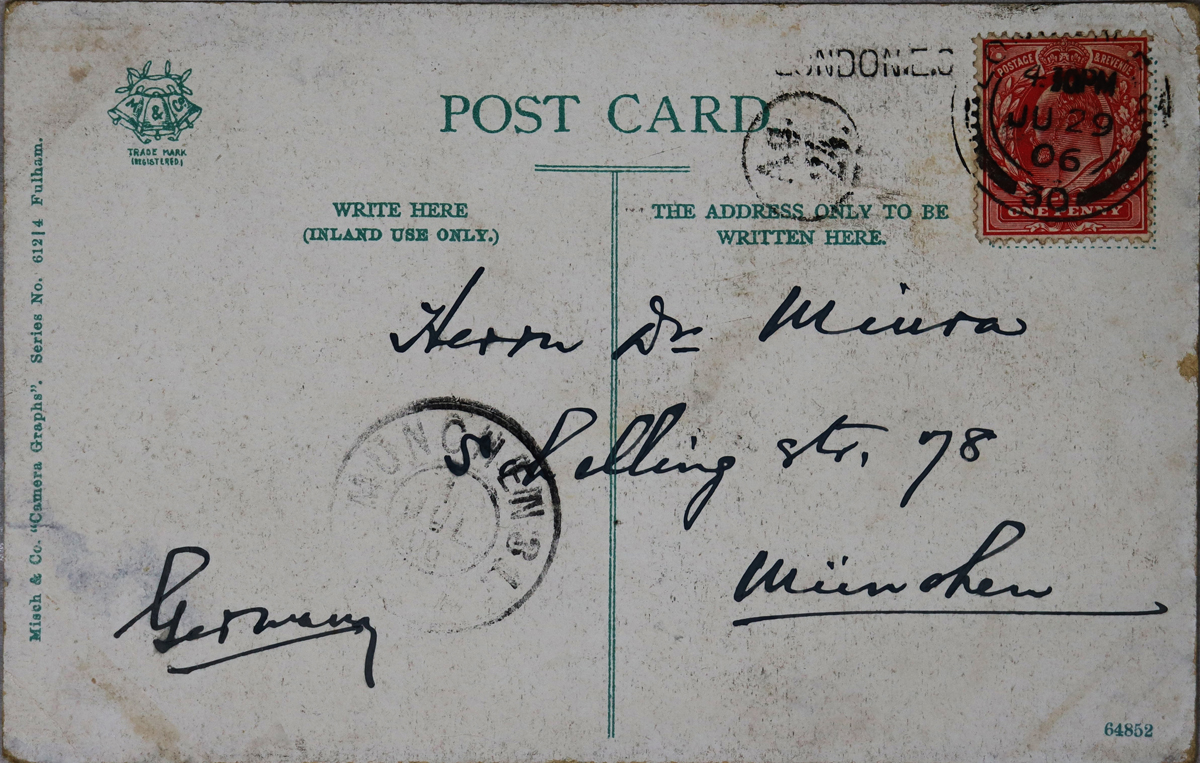 LONDON.E.C
POSTAGE & REVENUE
10PM
JU 29
06
30
ONE PENNY
M & Co
TRADE MARK
(REGISTERED)
POST CARD
A g.
24.
WRITE HERE
(INLAND USE ONLY.)
THE ADDRESS ONLY TO BE
WRITTEN HERE.
Misch & Co. "Camera Graphs". Series No. 612|4 Fulham.
Herrn Dr Miura
Schelling str. 78
München
Germany
MUNCHEN 31
JUL
64852